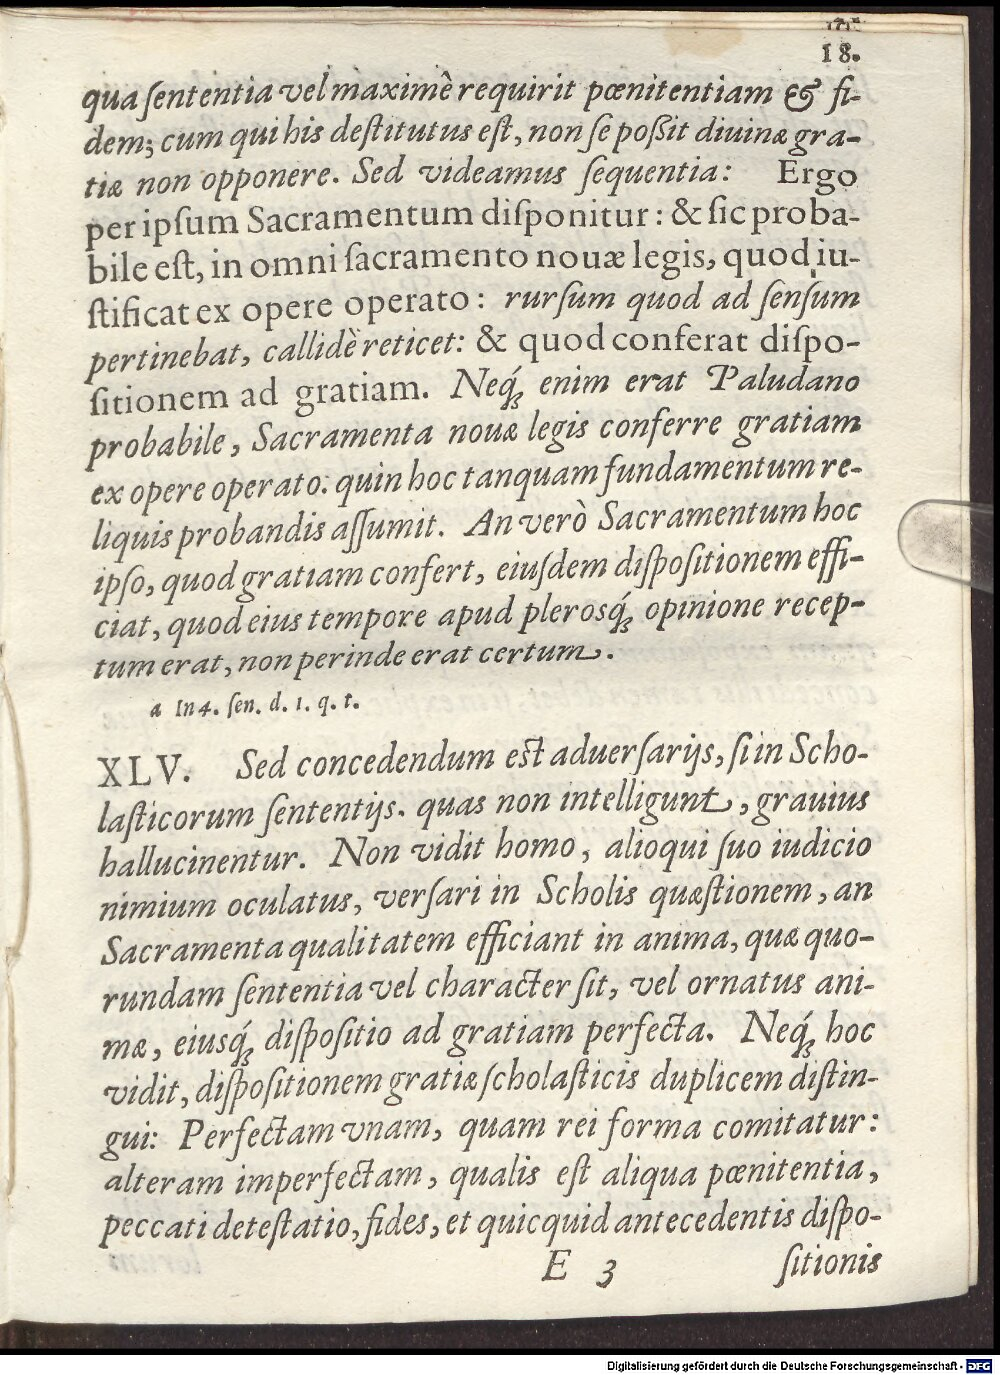 18.
qua ſententia vel maximè requirit pœnitentiam & fi-
dem; cum qui his deſtitutus eſt, non ſe poßit diuinæ gra-
tiæ non opponere. Sed videamus ſequentia: Ergo
per ipſum Sacramentum diſponitur: & ſic proba-
bile eſt, in omni ſacramento nouæ legis, quod iu-
ſtificat ex opere operato: rurſum quod ad ſenſum
pertinebat, callidè reticet: & quod conferat diſpo-
ſitionem ad gratiam. Neq́ꝫ enim erat Paludano
probabile, Sacramenta nouæ legis conferre gratiam
ex opere operato: quin hoc tanquam fundamentum re-
liquis probandis aſſumit. An verò Sacramentum hoc
ipſo, quod gratiam confert, eiuſdem diſpoſitionem effi-
ciat, quod eius tempore apud pleroſq́ꝫ opinione recep-
tum erat, non perinde erat certum.
a In 4. ſen. d. 1. q. 1.
XLV. Sed concedendum eſt aduerſarijs, ſi in Scho-
laſticorum ſententijs. quas non intelligunt, grauius
hallucinentur. Non vidit homo, alioqui ſuo iudicio
nimium oculatus, verſari in Scholis quæſtionem, an
Sacramenta qualitatem efficiant in anima, quæ quo-
rundam ſententia vel character ſit, vel ornatus ani-
mæ, eiusq́ꝫ diſpoſitio ad gratiam perfecta. Neq́ꝫ hoc
vidit, diſpoſitionem gratiæ ſcholaſticis duplicem diſtin-
gui: Perfectam vnam, quam rei forma comitatur:
alteram imperfectam, qualis eſt aliqua pœnitentia,
peccati deteſtatio, fides, et quicquid antecedentis diſpo-
E 3 ſitionis
Digitalisierung gefördert durch die Deutsche Forschungsgemeinschaft - DFG